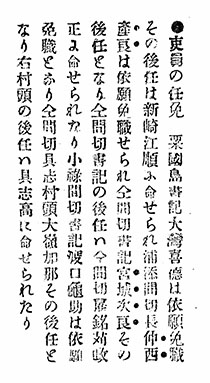 ●吏員の任免　粟國島書記大灣喜德は依願免職
その後任は新崎江順に命せられ浦添間切長仲西
產良は依願免職せられ仝間切書記宮城次良その
後任となり仝間切書記の後任は今間切銘苅政
正に命せられたり小祿間切書記渡口龜助は依願
免職となり仝間切具志村頭大嶺加那その後任と
なり右村頭の後任は具志高に命せられたり